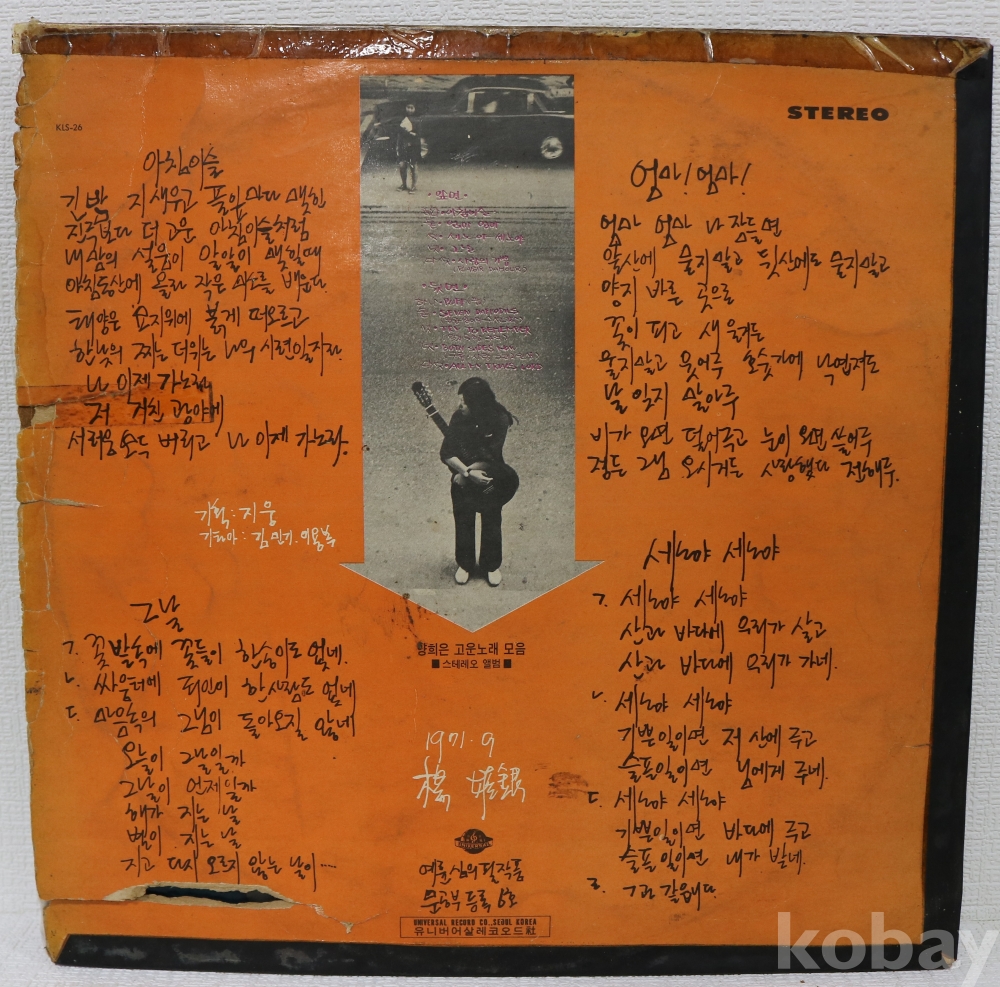 KLS-26
STEREO
아침이슬
긴밤 지새우고 풀잎마다 맺힌
진주보다 더 고운 아침이슬처럼
내맘의 설움이 알알이 맺힐때
아침동산에 올라 작은 미소를 배운다.
태양은 묘지위에 붉게 떠오르고
한낮의 찌는 더위는 나의 시련일지라
나 이제 가노라
저 거친 광야에
서러움 모두 버리고 나 이제 가노라.
기획:지웅
기타아:김민기.이용복
그날
ㄱ. 꽃밭속에 꽃들이 한송이도 없네.
ㄴ. 싸움터에 죄인이 한사람도 없네
ㄷ. 마음속의 그님이 돌아오질 않네
오늘이 그날일까
그날이 언제일까
해가 지는 날
별이 지는 날
지고 다시 오르지 않는 날이....
·앞면·
·뒷면·
양희은 고운노래 모음
■스테레오 앨범■
1971.9
楊姬銀
UNIVERSAL
예륜심의필작품
문공부등록 6호
UNIVERSAL RECORD CO., SEOUL KOREA
유니버어살레코오드社
엄마! 엄마!
엄마 엄마 나 잠들면
앞산에 묻지말고 뒷산에도 묻지말고
양지 바른 곳으로
꽃이 피고 새 울거든
울지말고 웃어주 호숫가에 낙엽져도
날 잊지 말아주
비가 오면 덮어주고 눈이 오면 쓸어주
정든 그님 오시거든 사랑했다 전해주.
세노야 세노야
ㄱ. 세노야 세노야
산과 바다에 우리가 살고
산과 바다에 우리가 가네.
ㄴ. 세노야 세노야
기쁜일이면 저 산에 주고
슬픈일이면 님에게 주네.
ㄷ. 세노야 세노야
기쁜일이면 바다에 주고
슬픈일이면 내가 받네.
ㄹ. ㄱ과 같읍니다
kobay